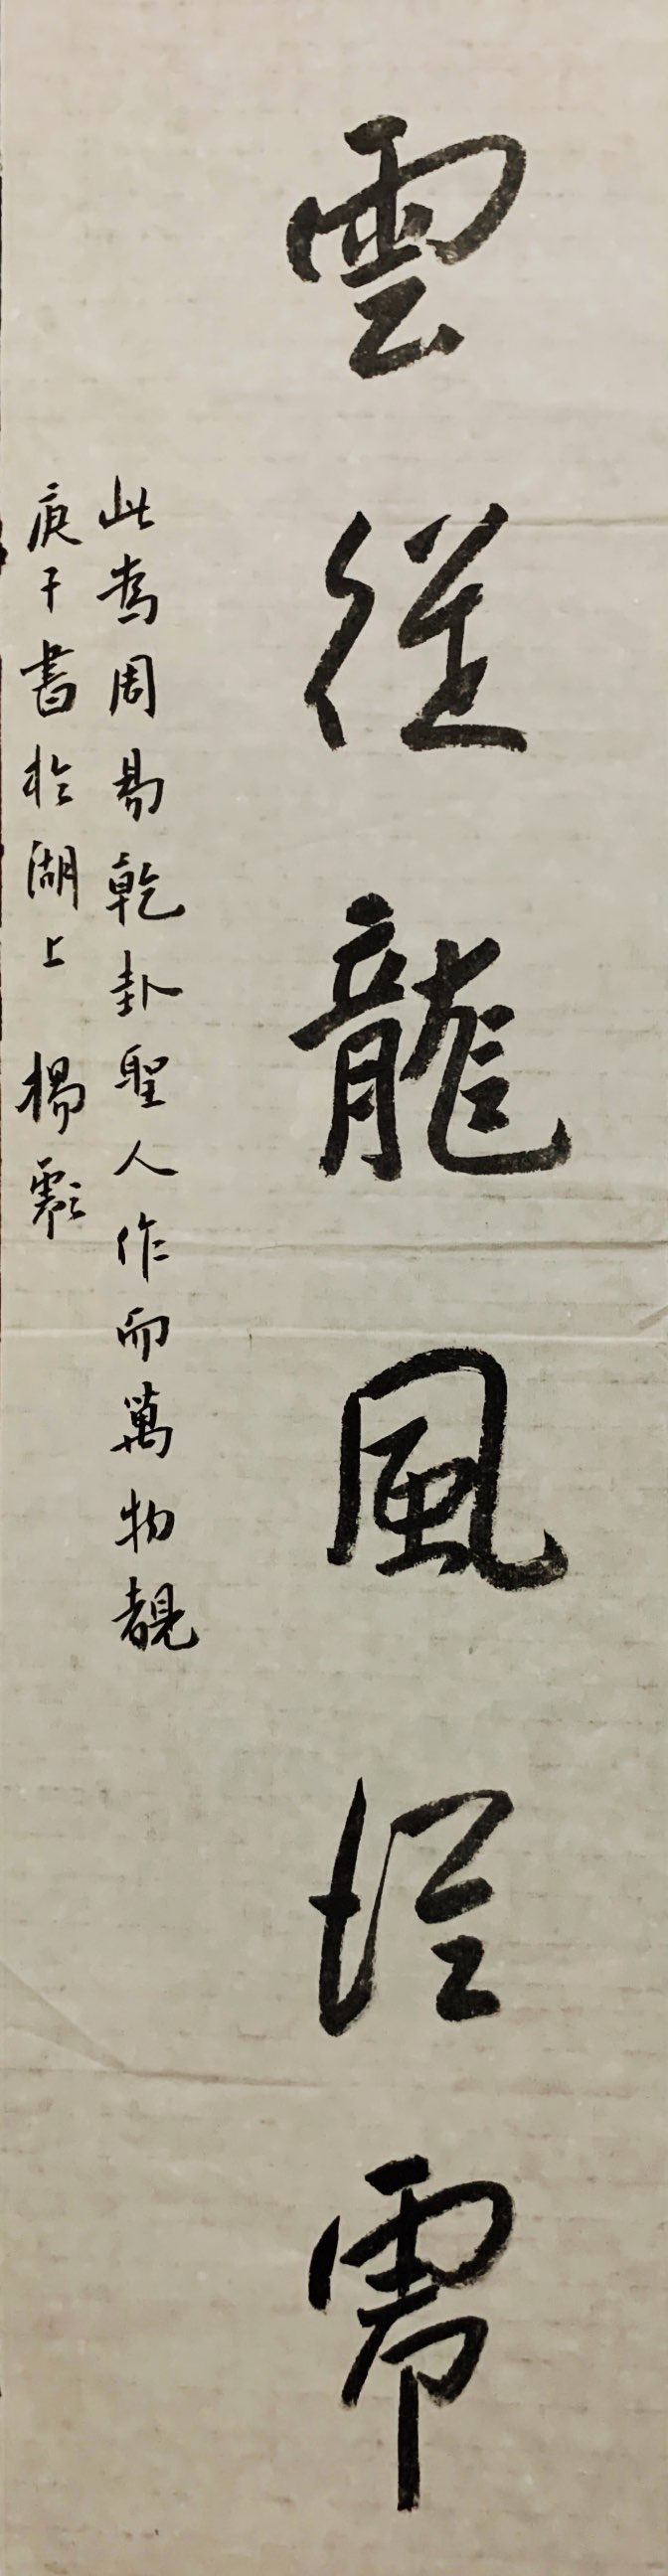 雲從龍風從虎
此為周易乾卦聖人作而萬物覩
庚子書於湖上 楊